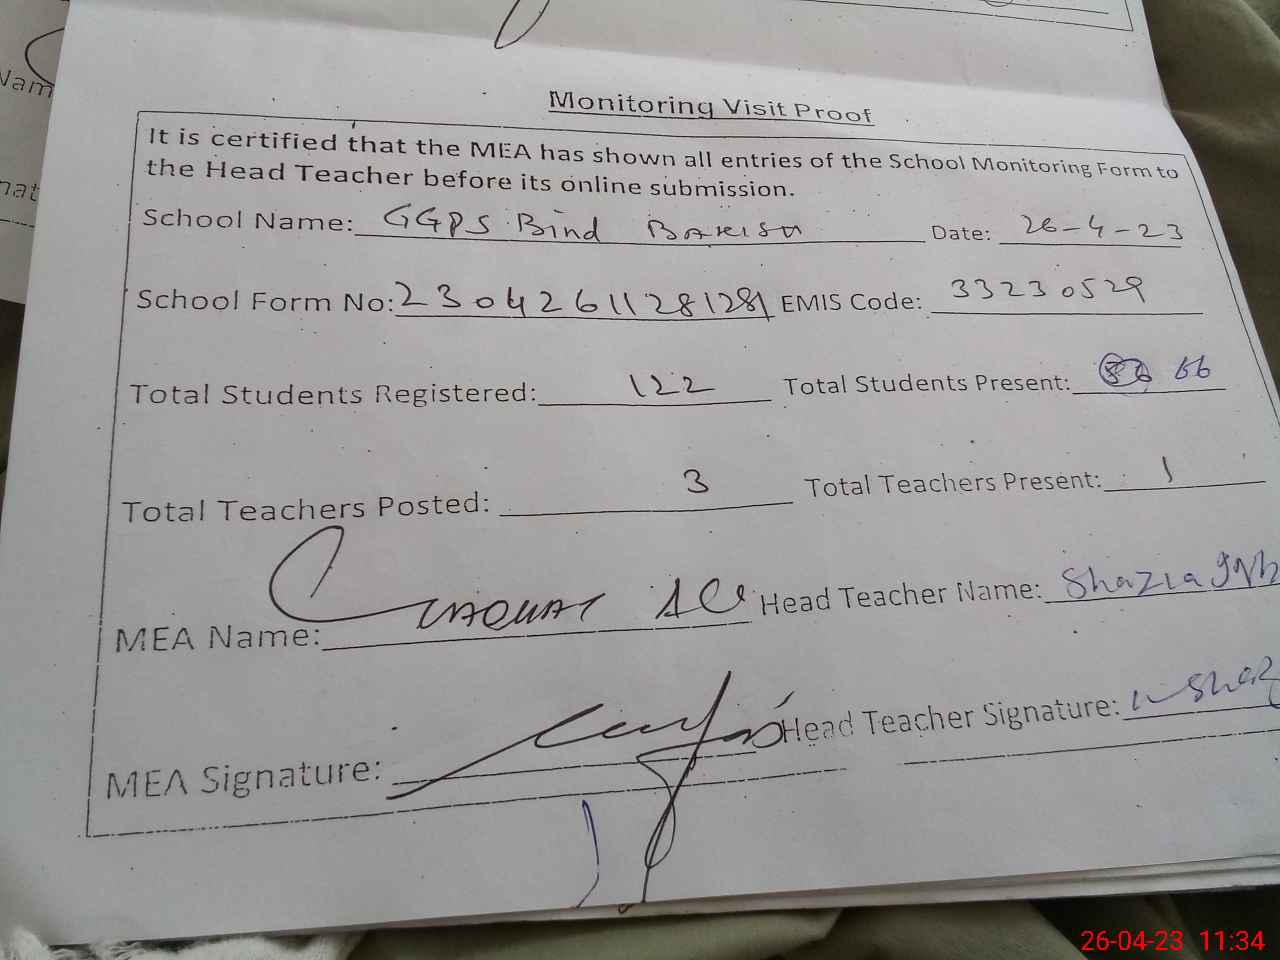 Nam
nat
Monitoring Visit Proof
It is certified that the MEA has shown all entries of the School Monitoring Form to
the Head Teacher before its online submission.
School Name: GGPS Bind Date: 26-4-23
School Form No: 23042611281281 EMIS Code: 33230529
Total Students Registered: 122 Total Students Present: 66
Total Teachers Posted: 3 Total Teachers Present: 1
MEA Name: LIAQUAT Ali Head Teacher Name: Shazia
MEA Signature: Head Teacher Signature:
26-04-23 11:34